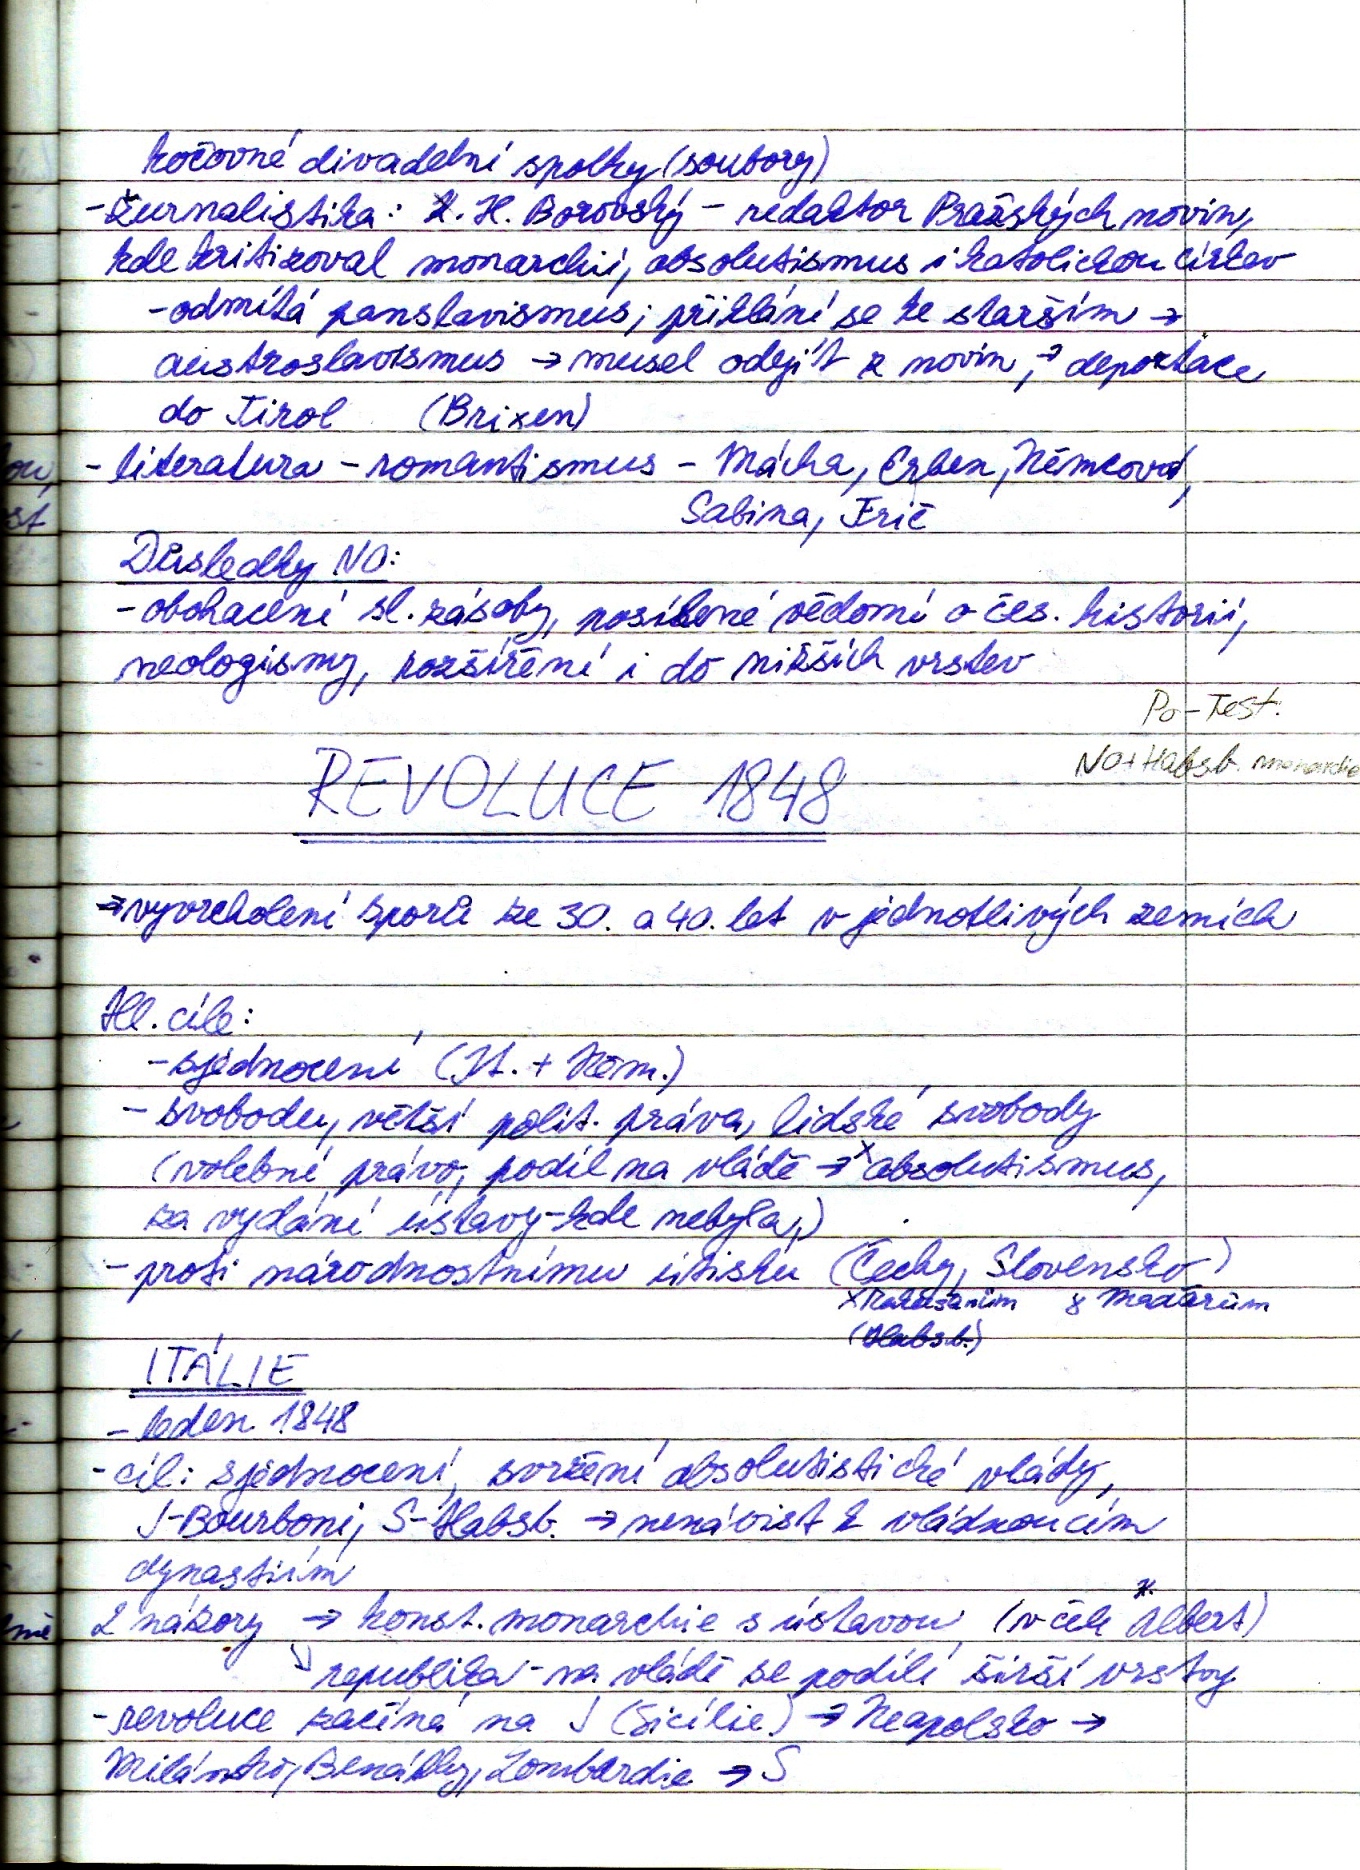 kočovné divadelní spolky (soubory)
- Žurnalistika: K. H. Borovský - redaktor Pražských novin,
kde kritizoval monarchii, absolutismus i katolickou církev
- odmítá panslavismus; přiklání se ke starším →
austroslavismus → musel odejít z novin, → deportace
do Tirol (Brixen)
- literatura - romantismus - Mácha, Erben, Němcová,
Sabina, Frič
Důsledky NO:
- obohacení sl. zásoby, posílené vědomí o čes. historii,
neologismy, rozšíření i do nižších vrstev
Po - Test.
NO + Habsb. monarchie
REVOLUCE 1848
→ vyvrcholení sporů ze 30. a 40. let v jednotlivých zemích
Hl. cíle:
- sjednocení (It. + Něm.)
- svobodu, větší polit. práva, lidské svobody
(volební právo, podíl na vládě → x absolutismus,
za vydání ústavy - kde nebyla,)
- proti národnostnímu útisku (Čechy, Slovensko)
x Rakušanům x Maďarům
(Habsb.)
ITÁLIE
- leden 1848
- cíl: sjednocení, svržení absolutistické vlády,
J - Bourboni, S - Habsb. → nenávist k vládnoucím
dynastiím
2 názory → konst. monarchie s ústavou (v čele K. Albert)
republika - na vládě se podílí širší vrstvy
- revoluce začíná na J (Sicílie) → Neapolsko →
Milánsko, Benátky, Lombardie → S